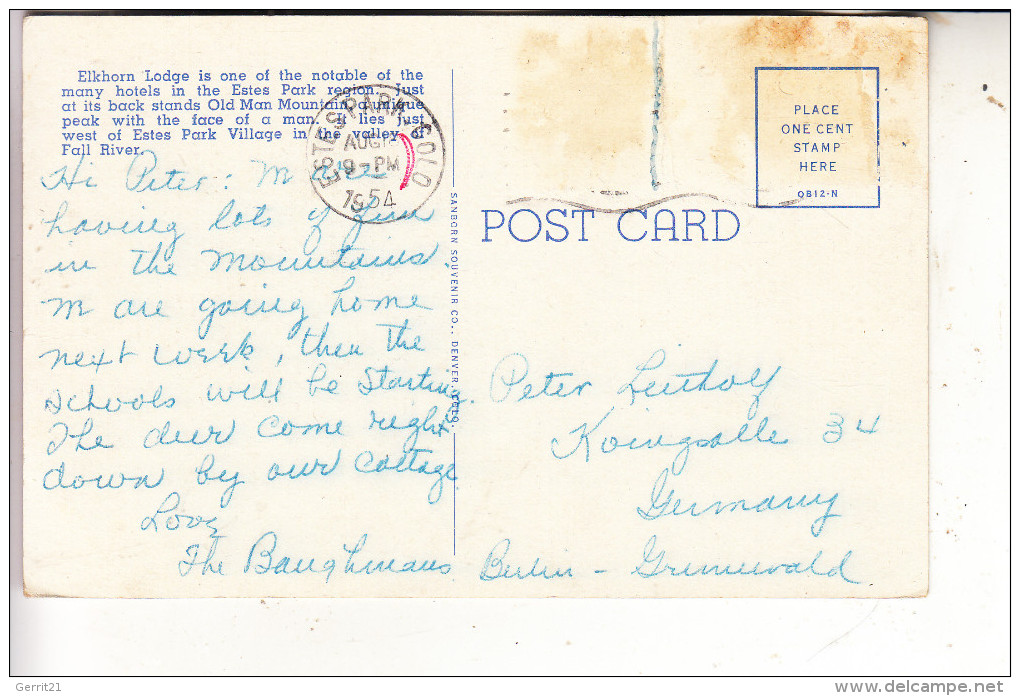 Elkhorn Lodge is one of the notable of the
many hotels in the Estes Park region. Just
at its back stands Old Man Mountain, a unique
peak with the face of a man. It lies just
west of Estes Park Village in the valley of
Fall River.
ESTES PARK, COLO
AUG
9 - PM
1954
Hi Peter:
having lots of fun
in the mountains.
are going home
next week, then the
schools will be starting.
The deer come right
down by our cottage
Love
The Baughmans
SANBORN SOUVENIR CO., DENVER, COLO.
PLACE
ONE CENT
STAMP
HERE
QB12-N
POST CARD
Peter
34
Germany
Berlin - Grunewald
Gerrit21
www.delcampe.net